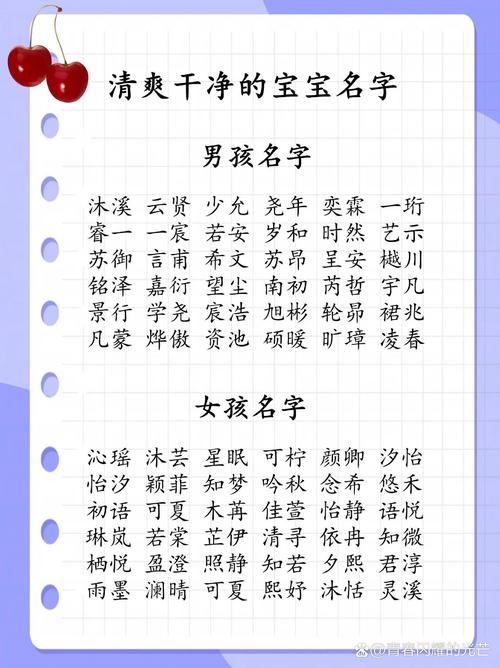 清爽干净的宝宝名字
男孩名字
沐溪 云贤 少允 尧年 奕霖 一珩
睿一 一宸 若安 岁和 时然 艺示
苏御 言甫 希文 苏昂 呈安 樾川
铭泽 嘉衍 望尘 南初 芮哲 宇凡
景行 学尧 宸浩 旭彬 轮昴 裙兆
凡蒙 烨傲 资池 硕暖 旷璋 凌春
女孩名字
沁瑶 沐芸 星眠 可柠 颜卿 汐怡
怡汐 颖菲 知梦 吟秋 念希 悠禾
初语 可夏 木苒 佳萱 怡静 语悦
琳岚 若棠 芷伊 清寻 依冉 知微
栖悦 盈澄 照静 知若 夕熙 君淳
雨墨 澜晴 可夏 熙妤 沐恬 灵溪
@青春闪耀的光芒